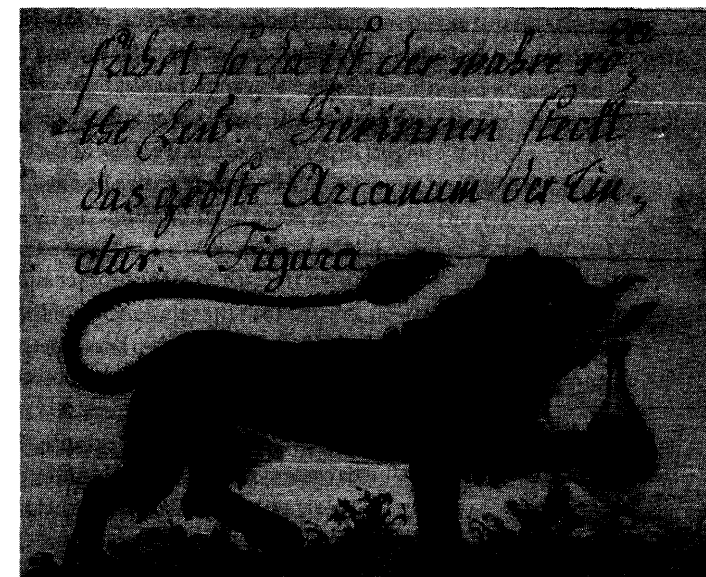 führt, so da ist der wahre ro,
the Leu. Hierinnen steckt
das größte Arcanum der Tin,
ctur. Figura